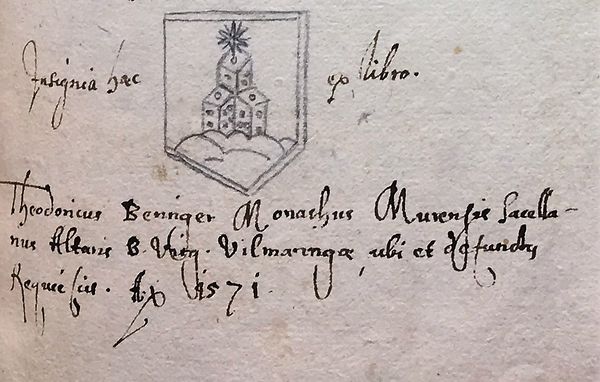 Insignia hæc ex libro.
Theodoricus Beniger Monachus Murensis Sacella-
nus Altaris B. Virg. Vilmaringæ ubi et defunctus
Requiescit. Aº 1571.